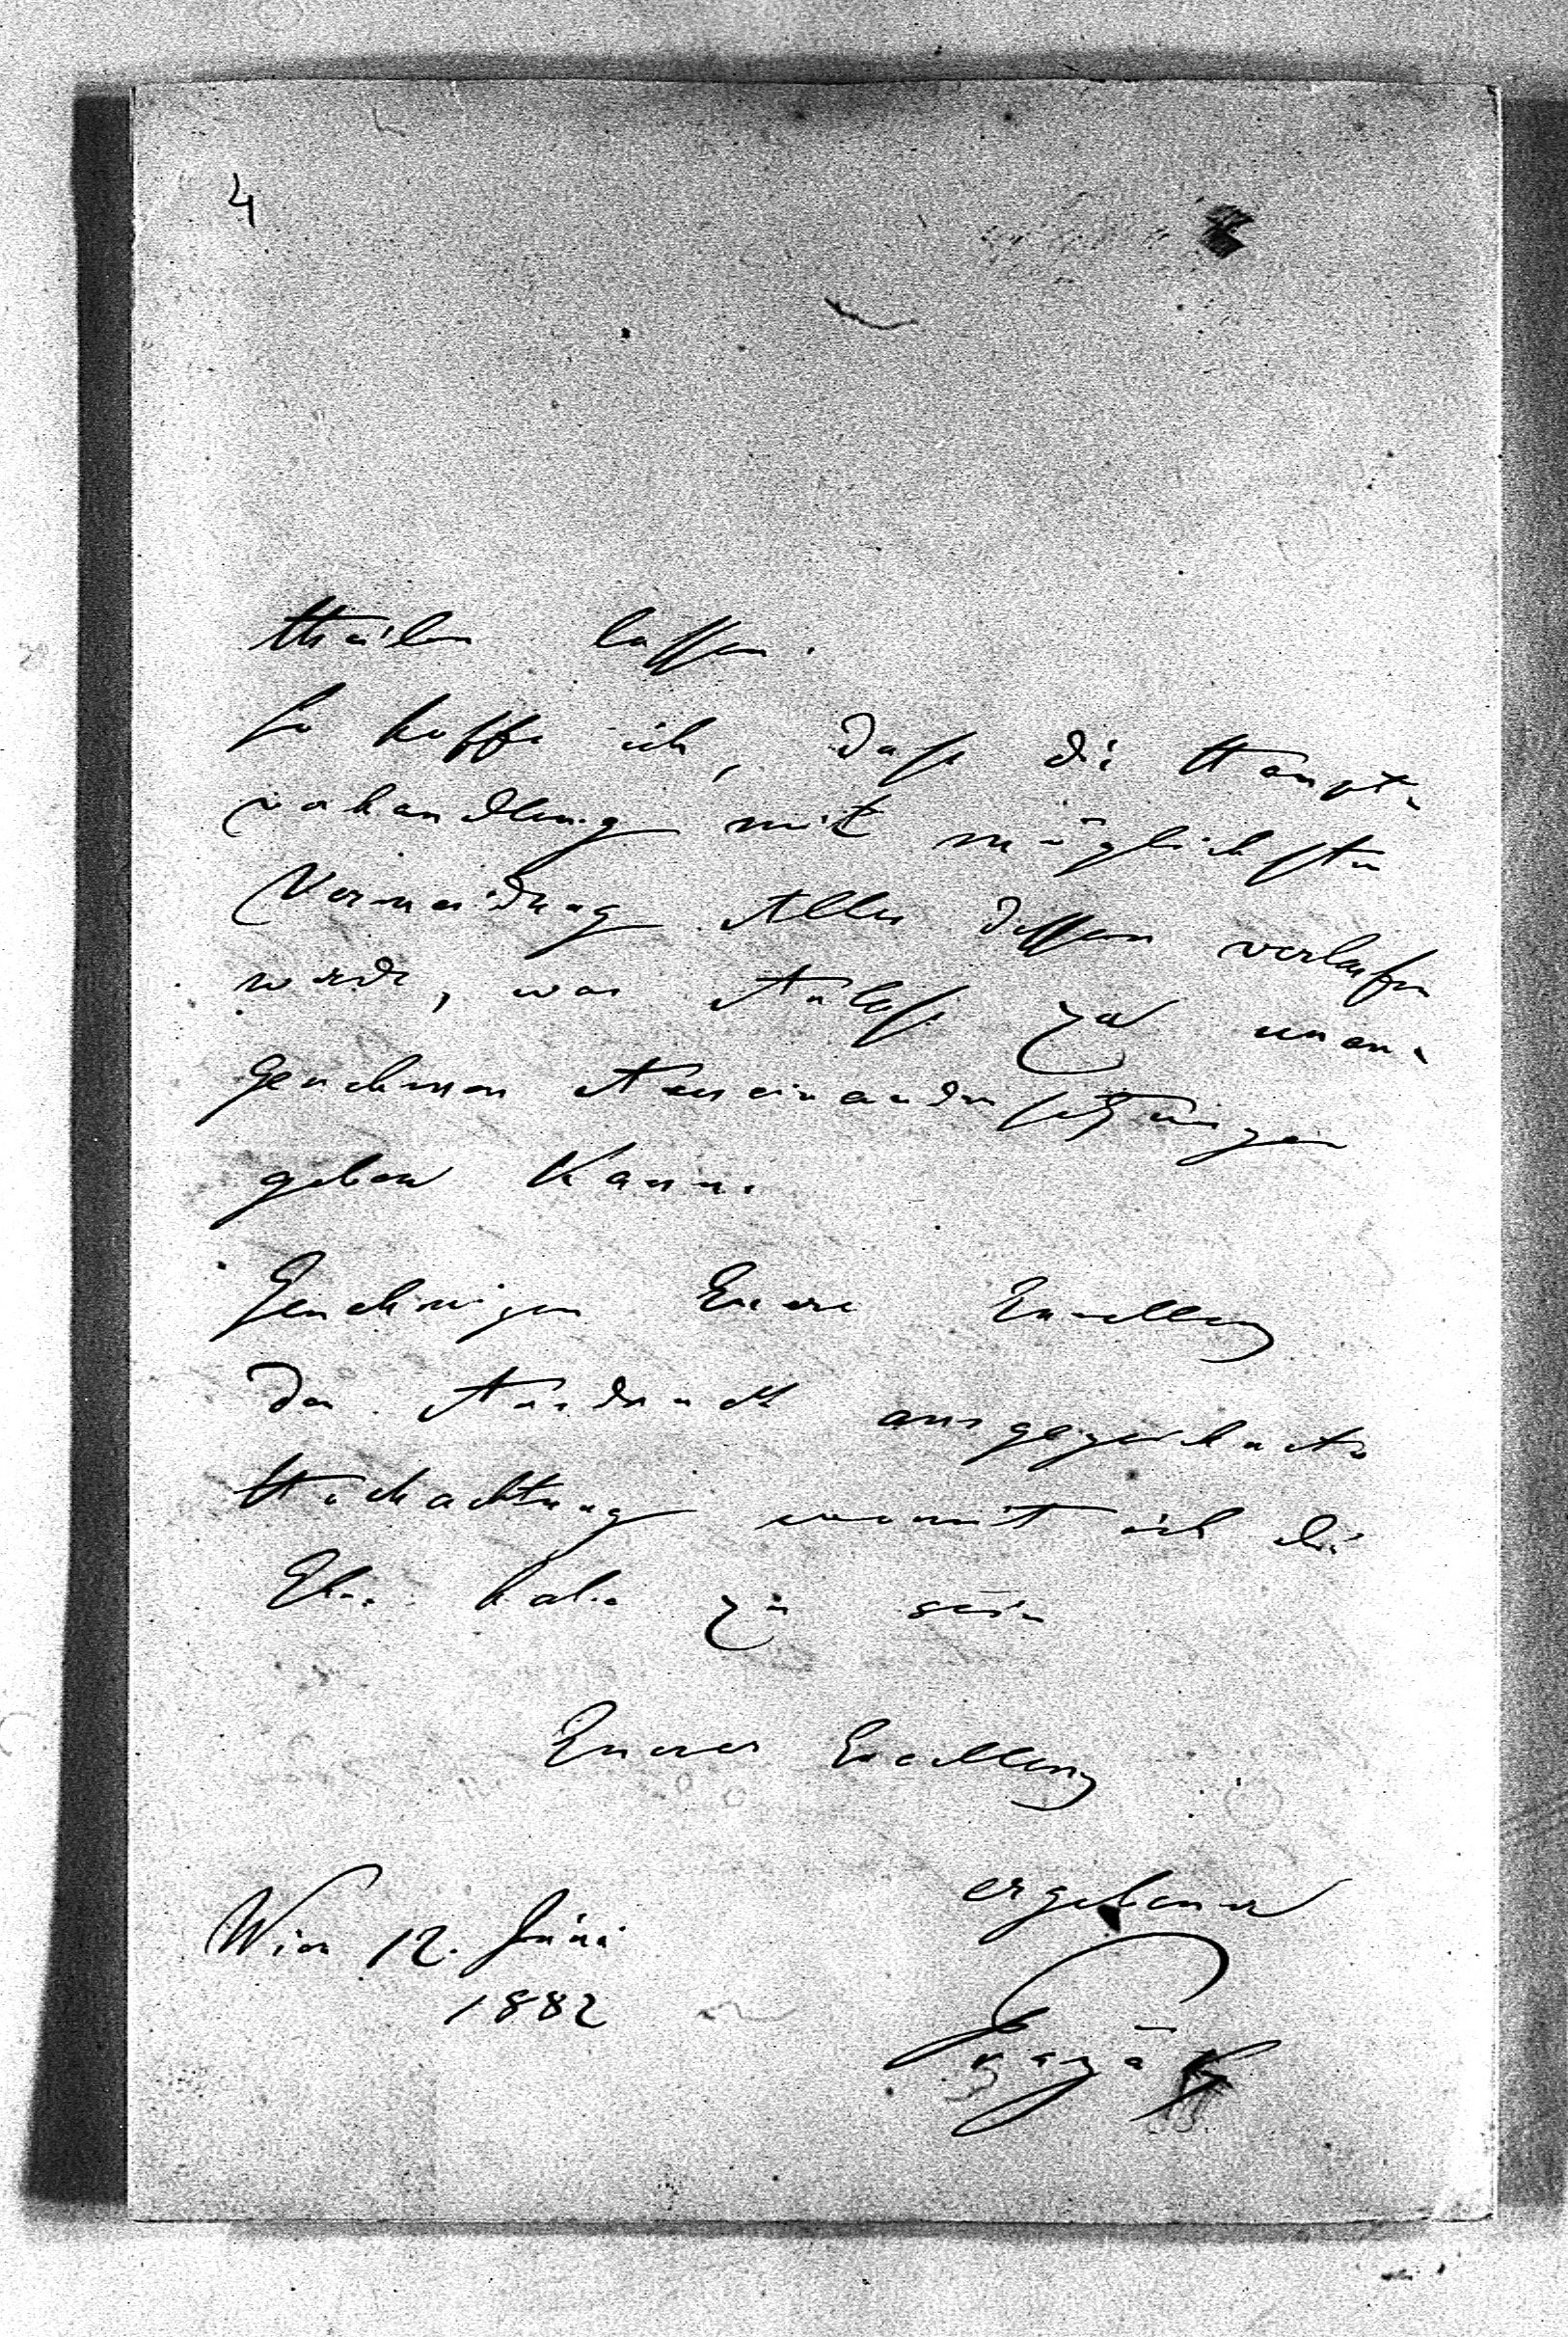 4
theilen lassen.
So hoffe ich, daß die Haupt-
verhandlung mit möglichster
Vermeidung Alles dessen verlaufen
werde, was Anlaß zu unan-
genehmen Auseinandersetzungen
geben kann.
Genehmigen Euere Excellenz
den Ausdruck ausgezeichneter
Hochachtung womit ich die
Ehre habe zu sein
Euerer Excellenz
ergebener
Wien 12. Juni
1882
Pražák